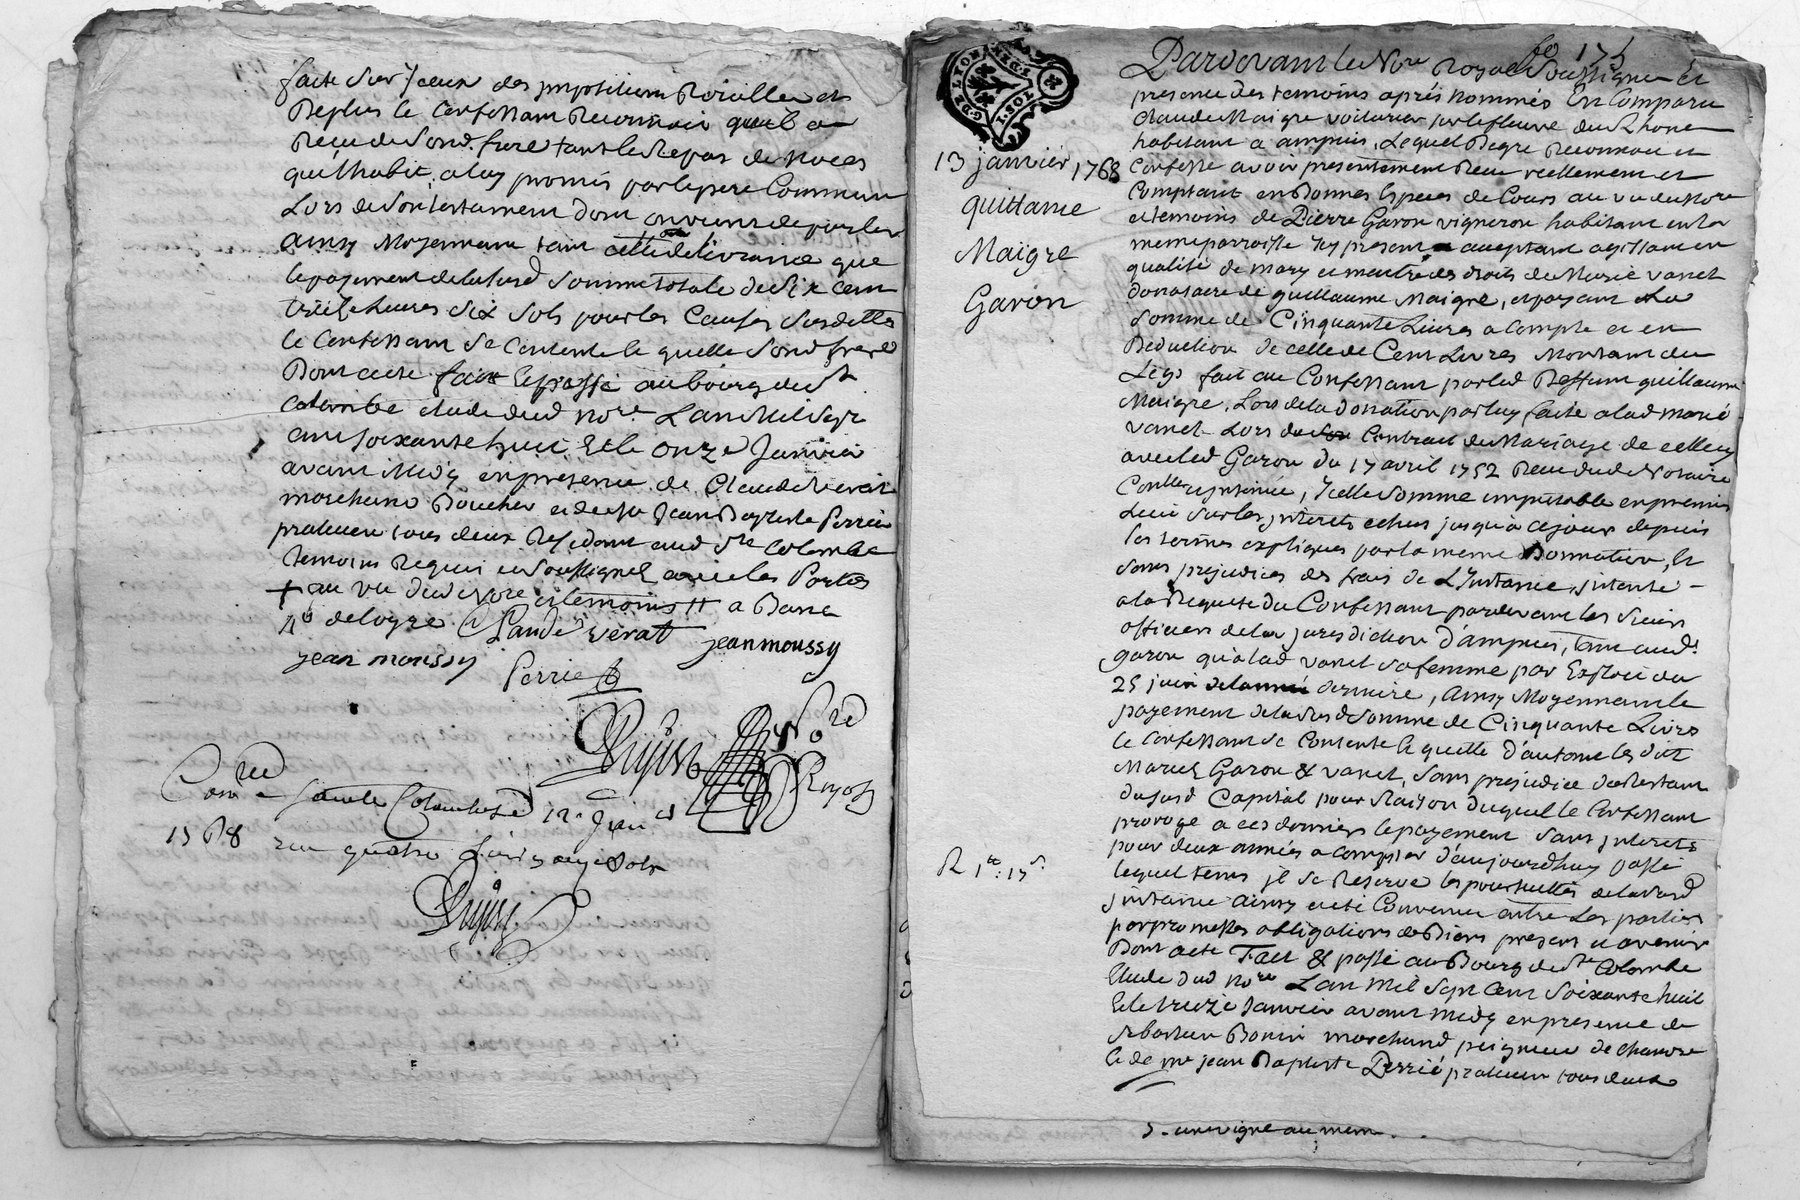 faite sur yceux des propositions pareilles et
Deplus le Confessant Reconnoit quil a
Reçu de Sond. frere tant le Repas de Noces
que l'habit, a luy promis par le pere Commun
Lors de Son testament dont on vient de parler
ainsy Moyennant tant cette delivrance que
le payement de la susd Somme totale de Six cent
livres six sols pour les Causes Susdittes
le Confessant Se Contente le quitte Sond frere
Dont acte fait & passé au bourg de St
Colombe etude dud Nore L'an Mil Sept
cent soixante huit, Et le onze Janvier
avant Midy en presence de Claude Verat
marchand Boucher et de Jean Baptiste Perrie
praticien tous deux Residant aud Ste Colombe
temoins Requis et Soussignes avec les Parties
+ au vu dud Nore et temoins
Claude verat jean moussy
jean moussy Perrie
Nore
Royal
Con.lé a Sainte Colombe le 12 Janv
1768 reçu quatre Livres Sols
fo 175
G. DE LYON
1. SOL
Pardevant le Nore Royal Soussigné et
presence des temoins après Nommés En Comparu
Claude Maigre voiturier sur le fleuve du Rhone
habitant a ampuis, Lequel De gre Reconnoit et
13 janvier 1768
Confesse avoir presentement Reçu reellement et
Comptant en Bonnes Especes de Cours au vu du Nore
quittance
et temoins de Pierre Garon vigneron habitant en la
Maigre
meme parroisse Icy present acceptant agissant en
qualité de mary et maitre des droits de Marie vanel
Garon
donataire de guillaume Maigre, et payant La
Somme de Cinquante Livres a Compte et en
Deduction de celle de Cent Livres Montant du
Legs fait au Confessant par led Deffunt guillaume
Maigre, Lors de la donation par luy faite a lad marie
vanel Lors du Contract de Mariage de celle cy
avec led Garon du 17 avril 1752 Reçu dud Notaire
Conlle et insinuée, Icelle Somme imputable en premier
Lieu sur les interets echus jusqu'a ce jour depuis
les termes expliqués par la meme Donnation, et
sans prejudice des frais de L'Instance intenté -
a la Requete du Confessant pardevant les Sieurs
officiers de la jurisdiction d'ampuis, tant aud.
garon qu'a lad vanel sa femme par Exploit du
25 juin de l'année derniere, ainsy Moyennant le
payement de la Susd Somme de Cinquante Livres
le Confessant se Contente le quitte d'autant lesdits
Mariés Garon & vanel, Sans prejudice du Restant
du susd Capital pour Raison duquel le Confessant
proroge a ces derniers le payement Sans interets
pour deux années a compter d'aujourdhuy passé
R 1# : 15 s
lequel tems il se Reserve les poursuittes de la susd
instance ainsy a eté Convenu entre Les parties
par promesses obligations de Biens present et avenir
Dont acte Fait & passé au Bourg de Ste Colombe
Etude dud Nore L'an Mil Sept Cent Soixante huit
Et le treize Janvier avant Midy en presence de
Sebastien Bonin marchand peigneur de chanvre
et de me jean Baptiste Perrié praticien tous deux